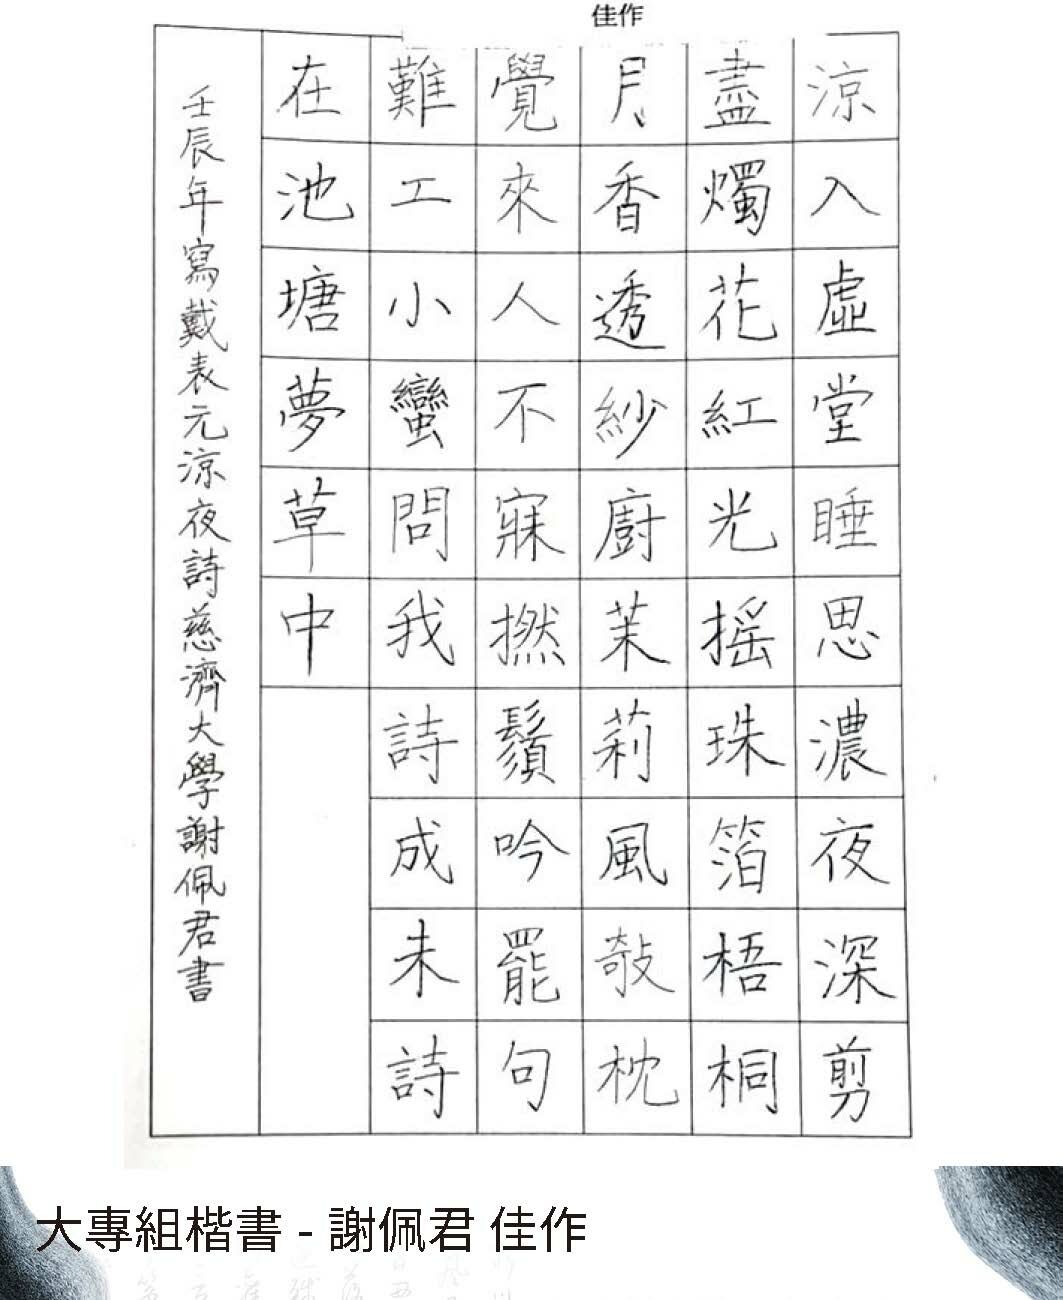 佳作
涼入虛堂睡思濃夜深剪
盡燭花紅光搖珠箔梧桐
月香透紗廚茉莉風敲枕
覺來人不寐撚鬚吟罷句
難工小蠻問我詩成未詩
在池塘夢草中
壬辰年寫戴表元涼夜詩慈濟大學謝佩君書
大專組楷書 - 謝佩君 佳作